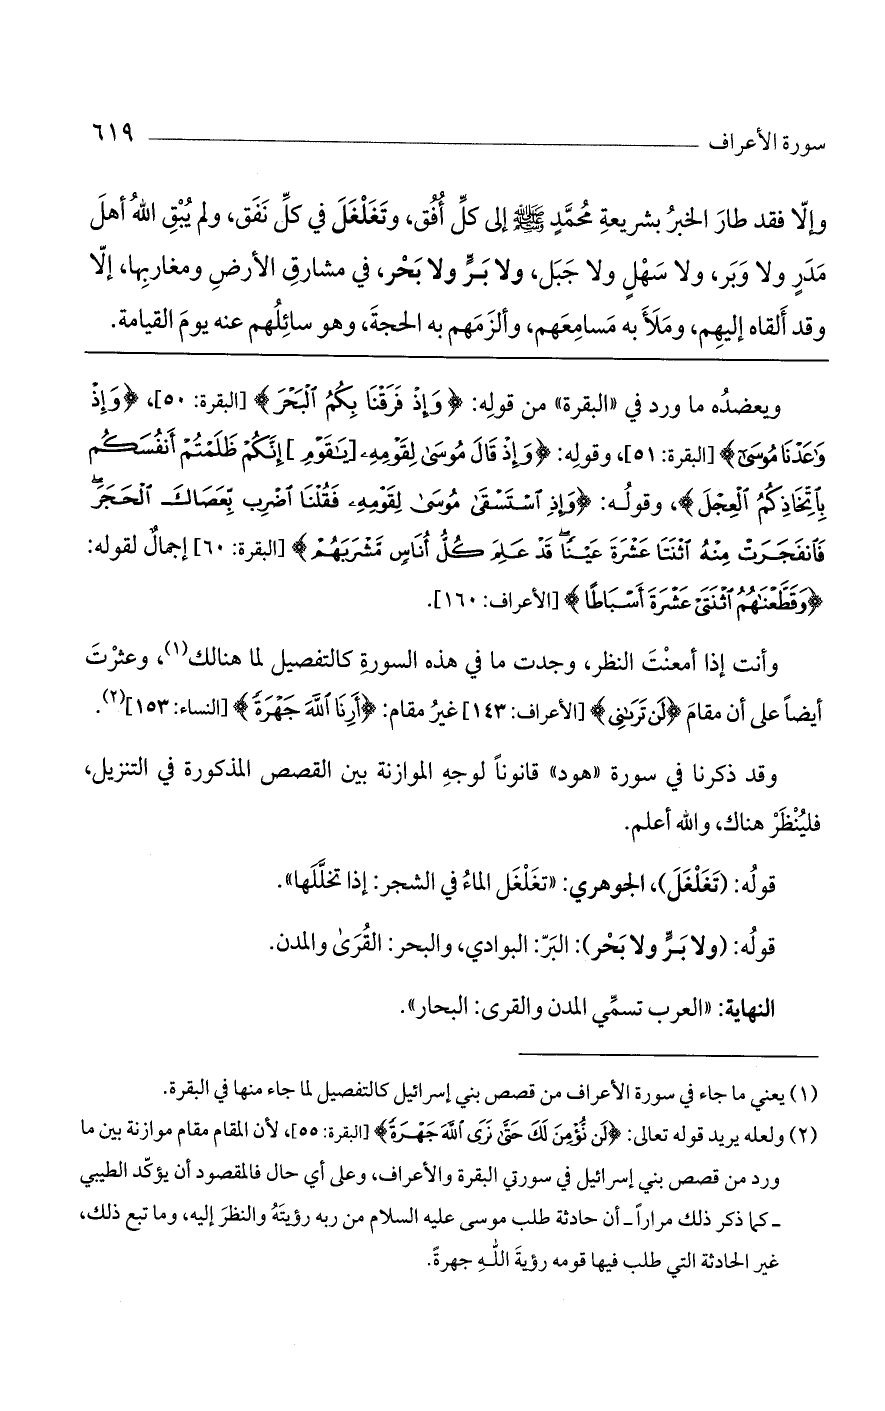 سورة الأعراف ٦١٩
وإلّا فقد طارَ الخبرُ بشريعةِ مُحمَّدٍ ﷺ إلى كلِّ أُفُق، وتَغَلْغَلَ في كلِّ نَفَق، ولم يُبْقِ اللهُ أهلَ
مَدَرٍ ولا وَبَر، ولا سَهْلٍ ولا جَبَل، ولا بَـرٍّ ولا بَحْر، في مشارقِ الأرضِ ومغاربِها، إلّا
وقد ألقاه إليهِم، ومَلَأَ به مَسامِعَهم، وألزَمَهم به الحجةَ، وهو سائِلُهم عنه يومَ القيامة.
ويعضدُه ما ورد في «البقرة» من قولِه: ﴿وَإِذْ فَرَقْنَا بِكُمُ ٱلْبَحْرَ﴾ [البقرة: ٥٠]، ﴿وَإِذْ
وَٰعَدْنَا مُوسَىٰٓ﴾ [البقرة: ٥١]، وقولِه: ﴿وَإِذْ قَالَ مُوسَىٰ لِقَوْمِهِۦ [يَٰقَوْمِ] إِنَّكُمْ ظَلَمْتُمْ أَنفُسَكُم
بِٱتِّخَاذِكُمُ ٱلْعِجْلَ﴾، وقولُـه: ﴿وَإِذِ ٱسْتَسْقَىٰ مُوسَىٰ لِقَوْمِهِۦ فَقُلْنَا ٱضْرِب بِّعَصَاكَ ٱلْحَجَرَ ۖ
فَٱنفَجَرَتْ مِنْهُ ٱثْنَتَا عَشْرَةَ عَيْنًا ۖ قَدْ عَلِمَ كُلُّ أُنَاسٍ مَّشْرَبَهُمْ﴾ [البقرة: ٦٠] إجمالٌ لقوله:
﴿وَقَطَّعْنَٰهُمُ ٱثْنَتَىْ عَشْرَةَ أَسْبَاطًا﴾ [الأعراف: ١٦٠].
وأنت إذا أمعنْتَ النظر، وجدت ما في هذه السورةِ كالتفصيل لما هنالك(١)، وعثرْتَ
أيضاً على أن مقامَ ﴿لَن تَرَىٰنِى﴾ [الأعراف: ١٤٣] غيرُ مقام: ﴿أَرِنَا ٱللَّهَ جَهْرَةً﴾ [النساء: ١٥٣](٢).
وقد ذكرنا في سورة «هود» قانوناً لوجهِ الموازنة بين القصص المذكورة في التنزيل،
فليُنْظَرْ هناك، والله أعلم.
قولُه: (تَغَلْغَلَ)، الجوهري: «تغَلْغَل الماءُ في الشجر: إذا تخلَّلَها».
قولُه: (ولا بَـرٍّ ولا بَحْر): البَرّ: البوادي، والبحر: القُرَىٰ والمدن.
النهاية: «العرب تسمِّي المدن والقرى: البحار».
(١) يعني ما جاء في سورة الأعراف من قصص بني إسرائيل كالتفصيل لما جاء منها في البقرة.
(٢) ولعله يريد قوله تعالى: ﴿لَن نُّؤْمِنَ لَكَ حَتَّىٰ نَرَى ٱللَّهَ جَهْرَةً﴾ [البقرة: ٥٥]، لأن المقام مقام موازنة بين ما
ورد من قصص بني إسرائيل في سورتي البقرة والأعراف، وعلى أي حال فالمقصود أن يؤكّد الطيبي
ـ كما ذكر ذلك مراراً ـ أن حادثة طلب موسى عليه السلام من ربه رؤيتَهُ والنظرَ إليه، وما تبع ذلك،
غير الحادثة التي طلب فيها قومه رؤيةَ اللهِ جهرةً.